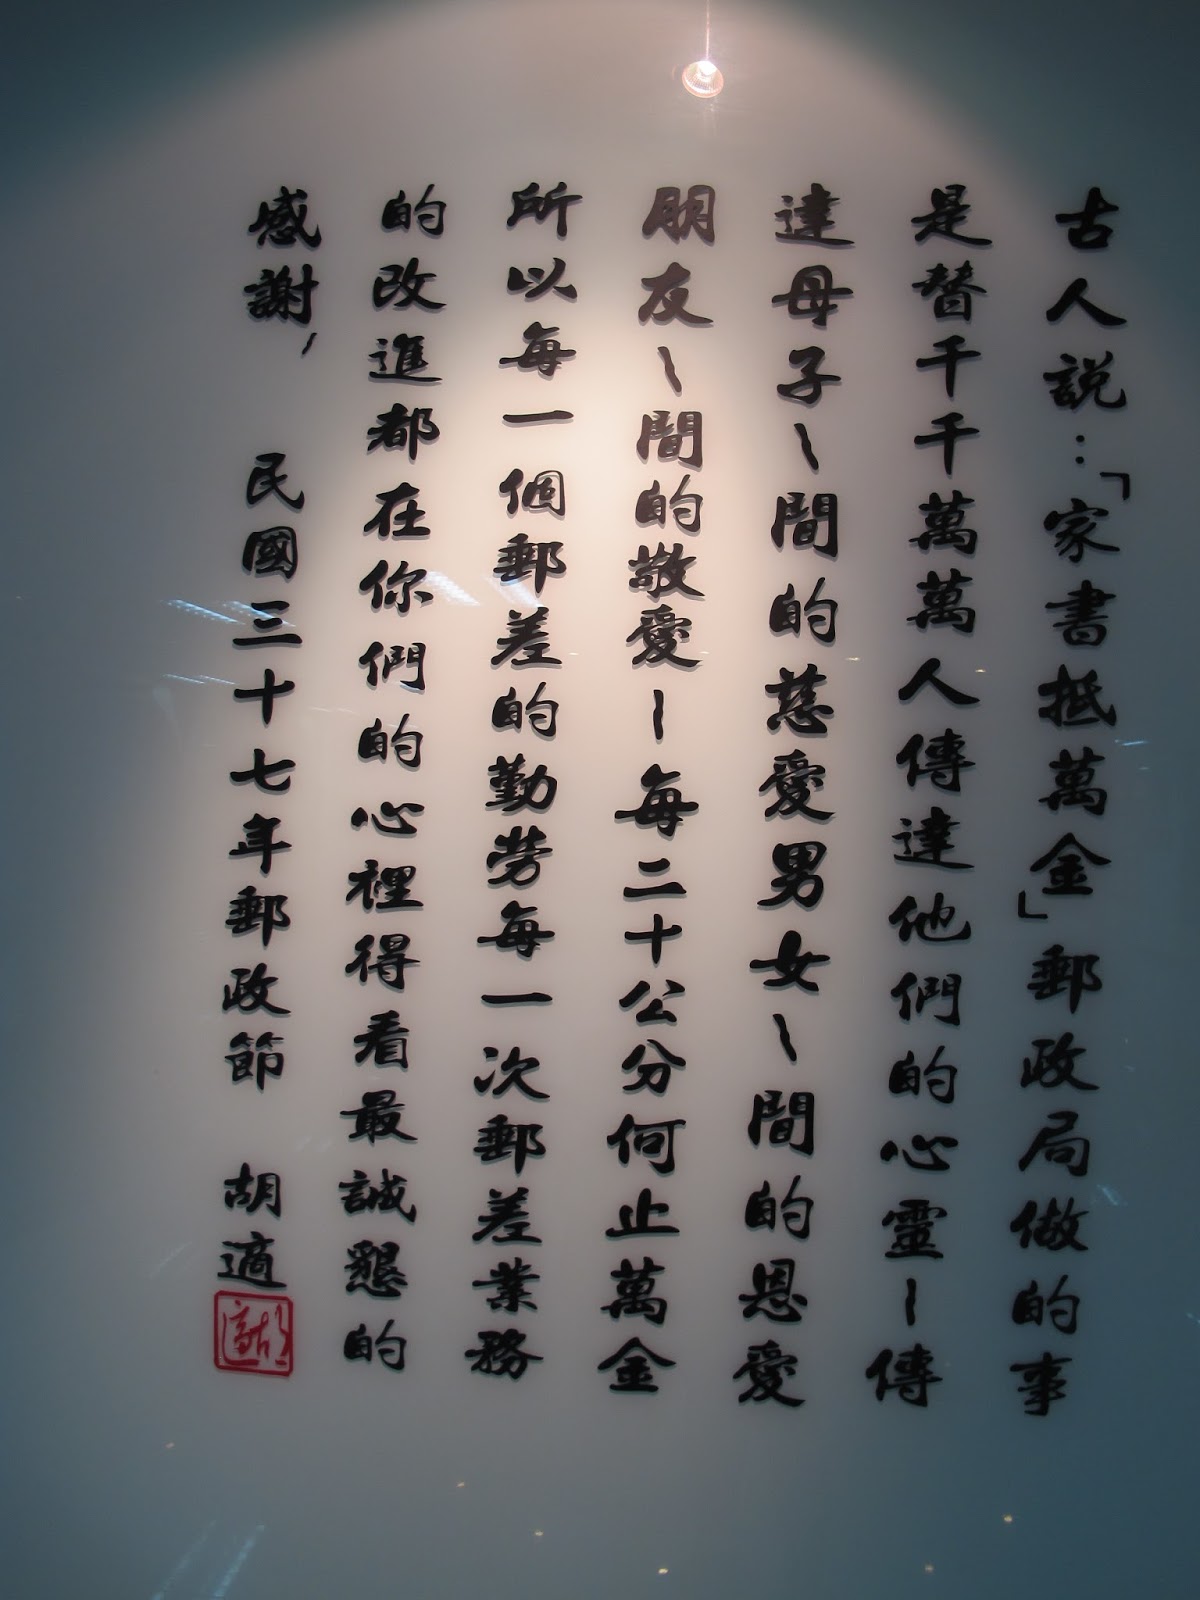 古人説：「家書抵萬金」郵政局做的事
是替千千萬萬人傳達他們的心靈～傳
達母子～間的慈愛男女～間的恩愛
朋友～間的敬愛～每二十公分何止萬金
所以每一個郵差的勤勞每一次郵差業務
的改進都在你們的心裡得着最誠懇的
感謝，　民國三十七年郵政節　胡適
胡適